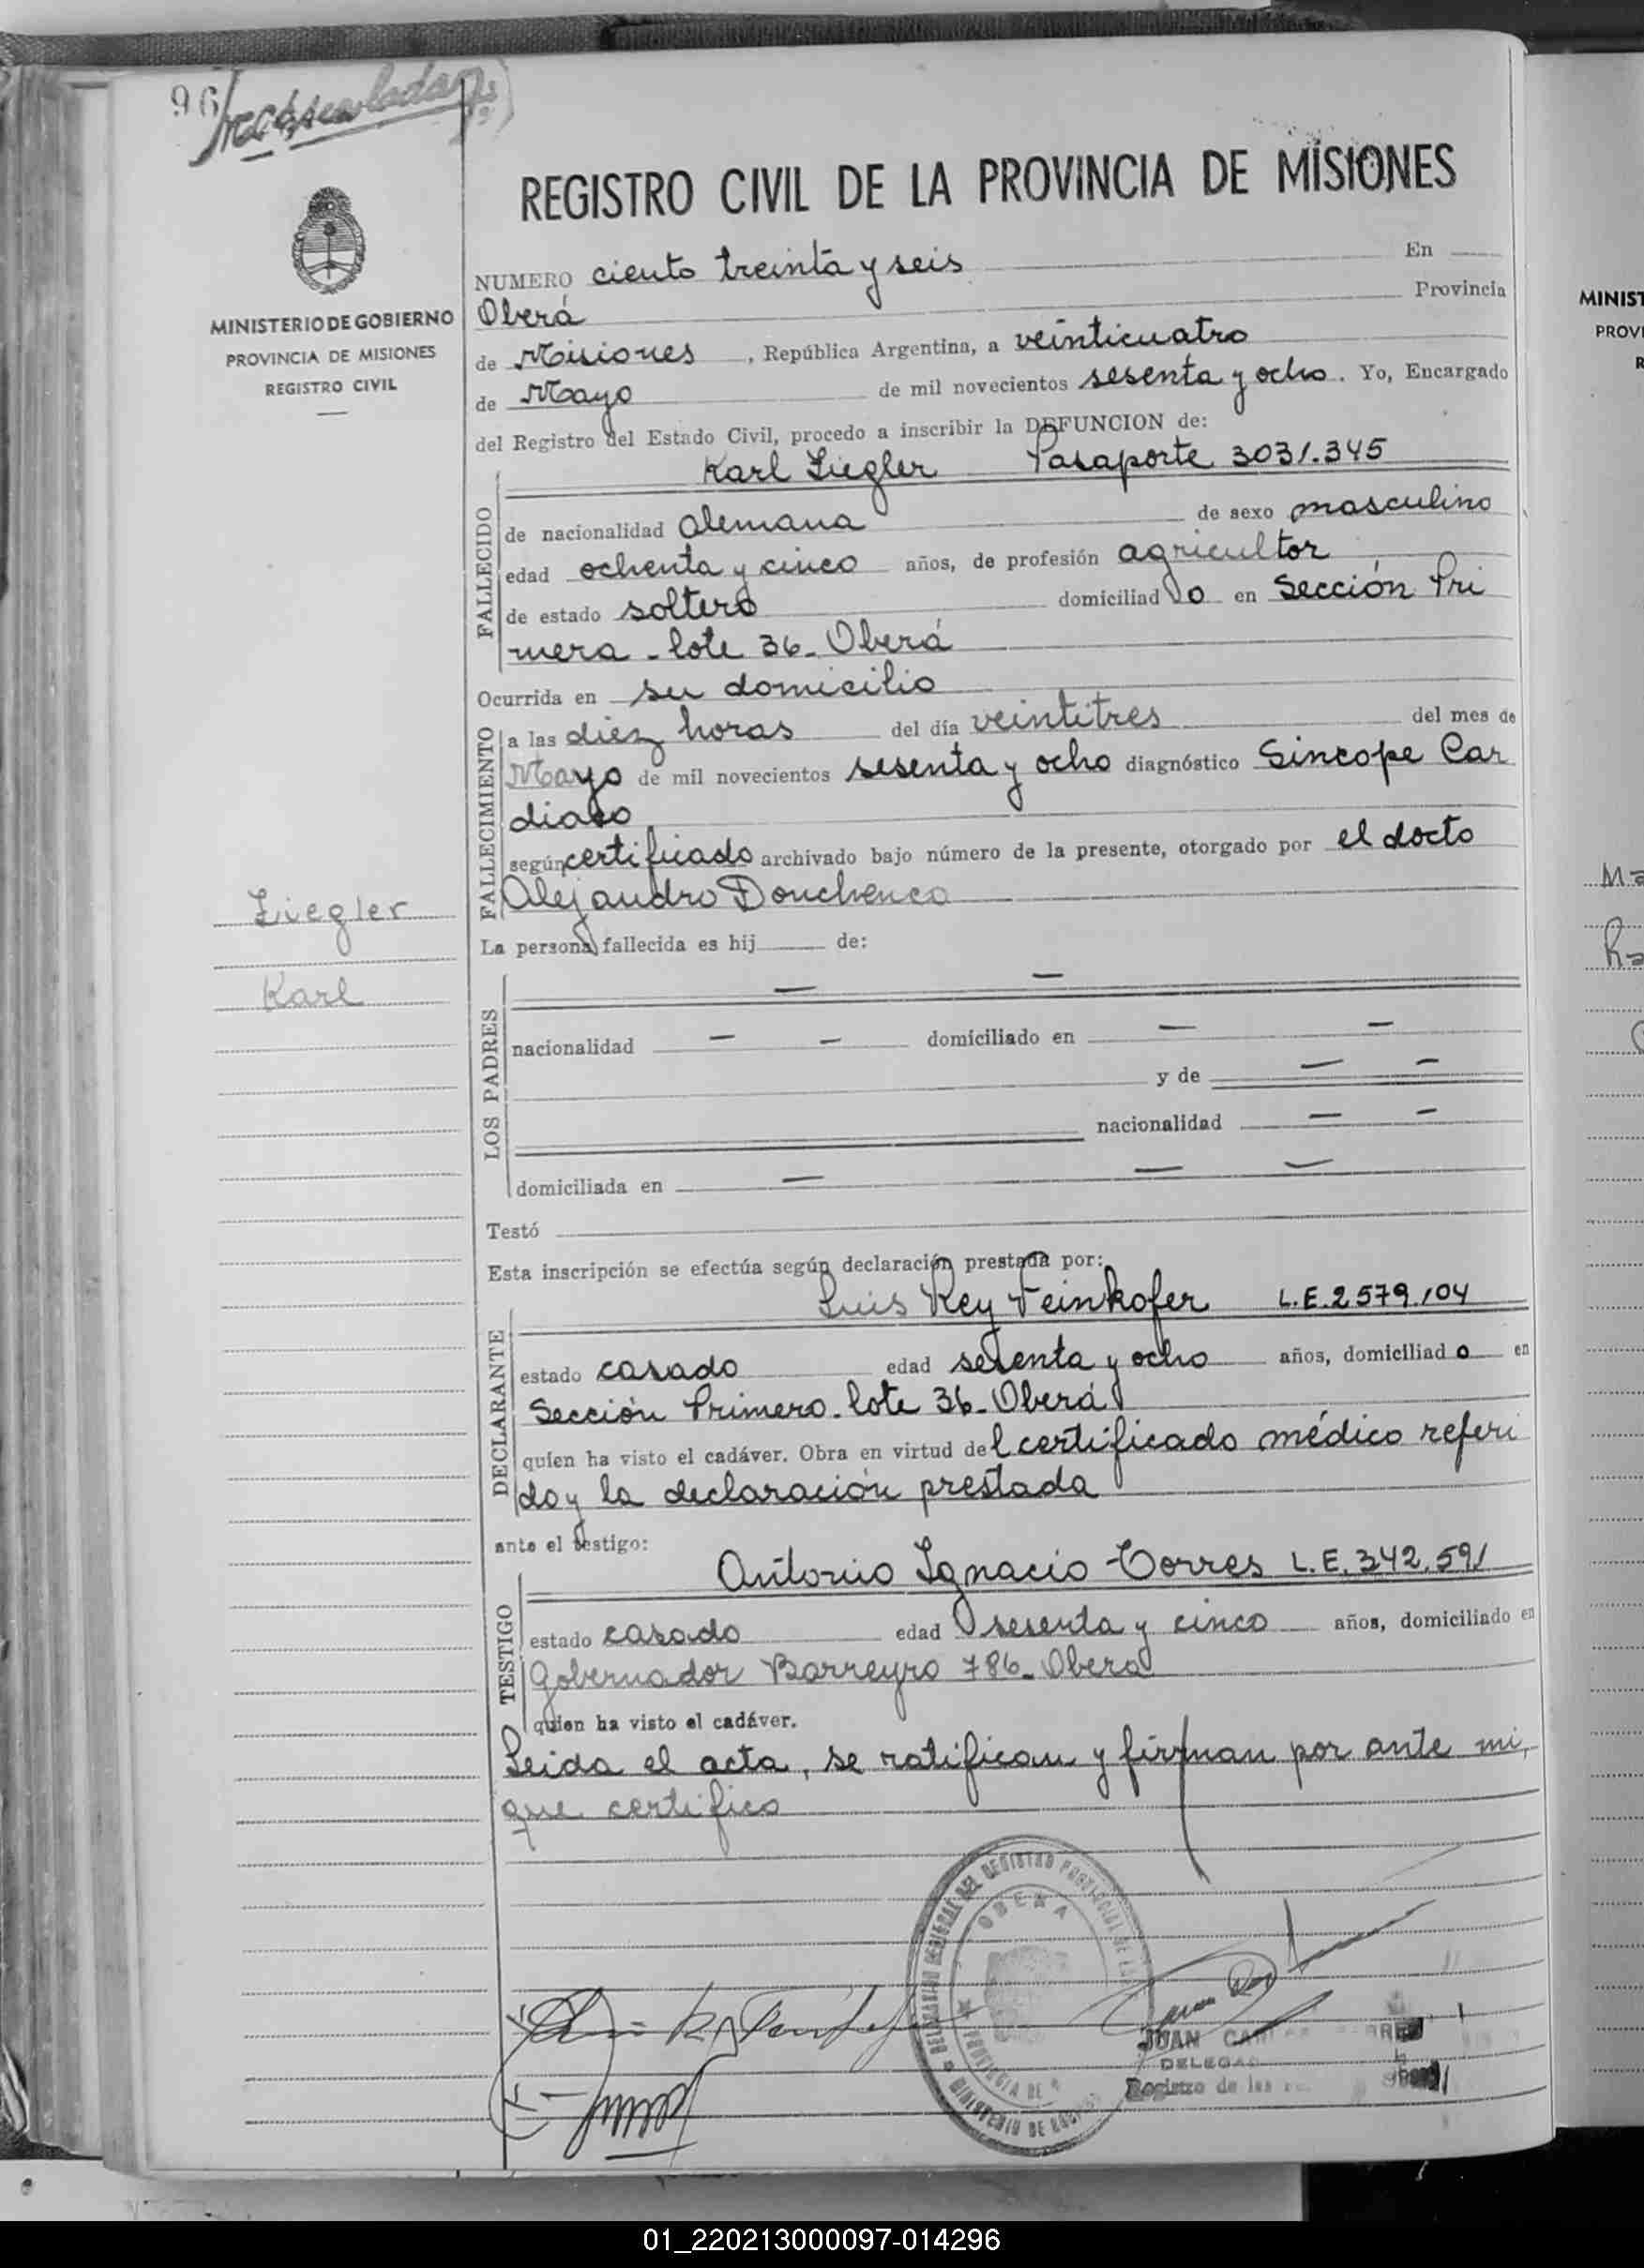 96
REGISTRO CIVIL DE LA PROVINCIA DE MISIONES
MINISTERIO DE GOBIERNO
PROVINCIA DE MISIONES
REGISTRO CIVIL
NUMERO ciento treinta y seis En
Oberá Provincia
de Misiones, República Argentina, a veinticuatro
de Mayo de mil novecientos sesenta y ocho. Yo, Encargado
del Registro del Estado Civil, procedo a inscribir la DEFUNCION de:
Karl Ziegler Pasaporte 3031.345
FALLECIDO
de nacionalidad alemana de sexo masculino
edad ochenta y cinco años, de profesión agricultor
de estado soltero domiciliado en Sección Pri
mera - lote 36 - Oberá
Ocurrida en su domicilio
FALLECIMIENTO
a las diez horas del día veintitres del mes de
Mayo de mil novecientos sesenta y ocho diagnóstico Sincope Car
diaco
según certificado archivado bajo número de la presente, otorgado por el docto
Alejandro Douchenco
Ziegler
Karl
La persona fallecida es hij de:
LOS PADRES
— —
nacionalidad — — domiciliado en — —
y de — —
nacionalidad — —
domiciliada en — — —
Testó
Esta inscripción se efectúa según declaración prestada por:
Luis Rey Feinkofer L.E. 2579.104
DECLARANTE
estado casado edad setenta y ocho años, domiciliado en
Sección Primero - lote 36 - Oberá
quien ha visto el cadáver. Obra en virtud del certificado médico referi
do y la declaración prestada
ante el testigo:
Antonio Ignacio Torres L.E. 342.591
TESTIGO
estado casado edad sesenta y cinco años, domiciliado en
Gobernador Barreyro 786 - Oberá
quien ha visto el cadáver.
Leida el acta, se ratifican y firman por ante mi,
que certifico
OBERA
JUAN
DELEGAD
Registro de las
MINIST
PROVI
R
01_220213000097-014296